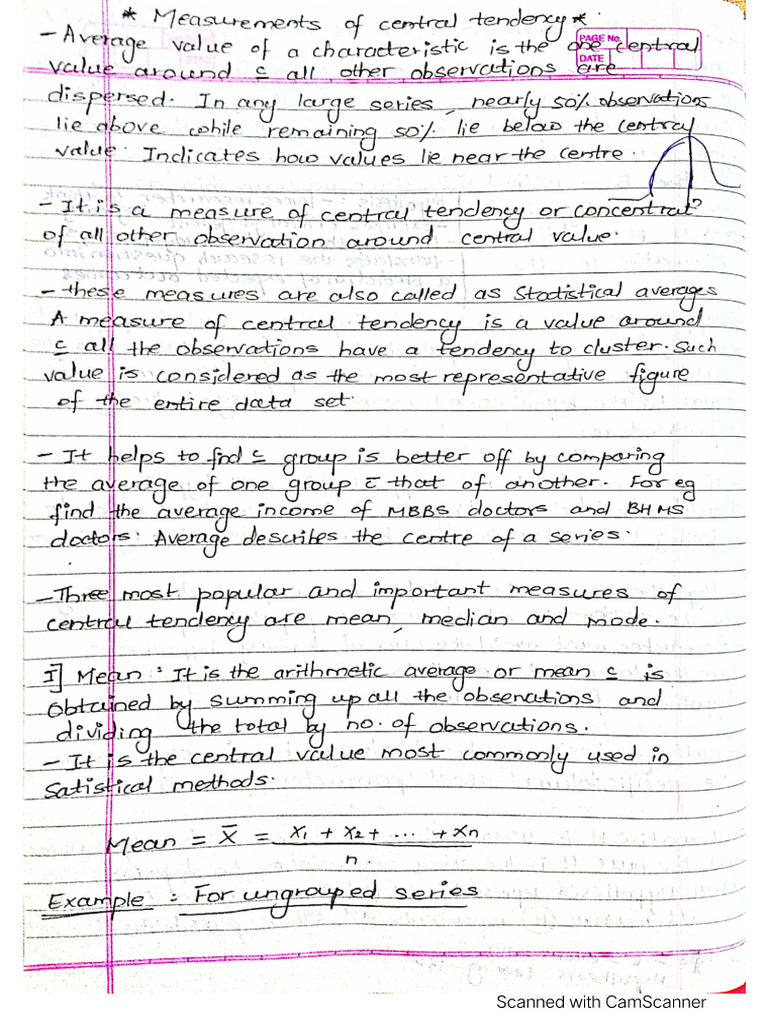 * Measurements of central tendency *
PAGE No.
DATE
- Average value of a characteristic is the one central
value around c̲ all other observations are
dispersed. In any large series, nearly 50% observations
lie above while remaining 50% lie below the central
value. Indicates how values lie near the centre.
- It is a measure of central tendency or concentratⁿ
of all other observation around central value.
- these measures are also called as Statistical averages
A measure of central tendency is a value around
c̲ all the observations have a tendency to cluster. Such
value is considered as the most representative figure
of the entire data set.
- It helps to find c̲ group is better off by comparing
the average of one group c̅ that of another. For eg
find the average income of MBBS doctors and BHMS
doctors. Average describes the centre of a series.
- Three most popular and important measures of
central tendency are mean, median and mode.
I] Mean : It is the arithmetic average or mean c̲ is
obtained by summing up all the observations and
dividing the total by no. of observations.
- It is the central value most commonly used in
Satistical methods.
Mean = X̅ = x₁ + x₂ + ... + xn
n.
Example : For ungrouped series
Scanned with CamScanner